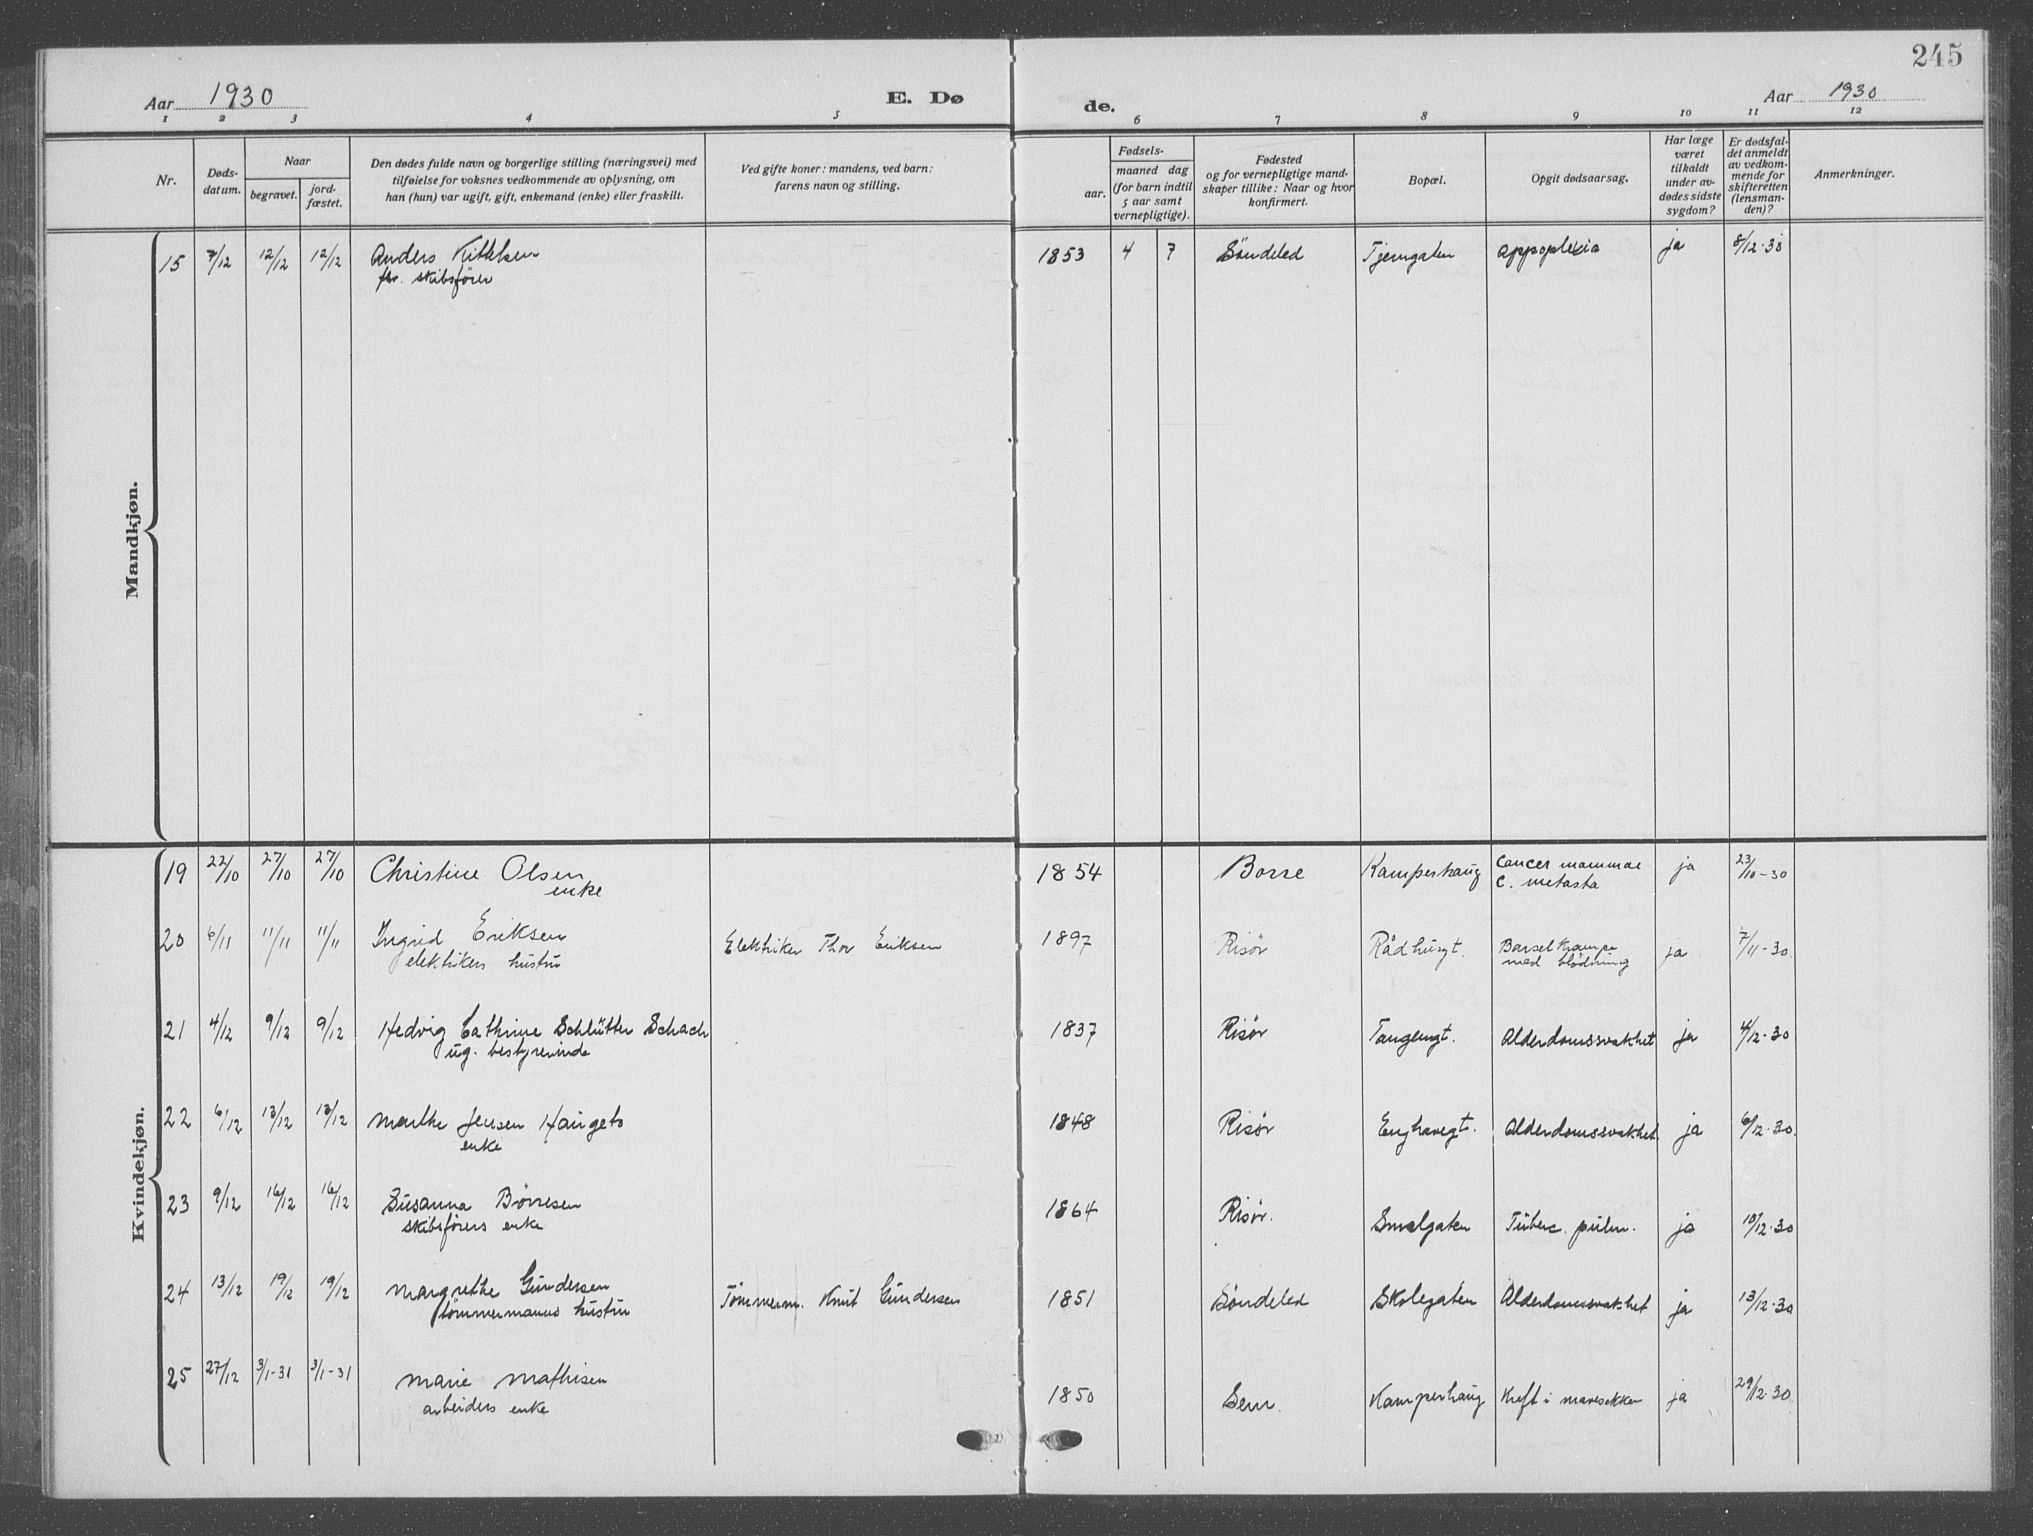 245
Aar 1930
E. Dø
de.
Aar 1930
1 2 3 4 5 6 7 8 9 10 11 12
Nr.
Døds-
datum.
Naar
begravet.
jord-
fæstet.
Den dødes fulde navn og borgerlige stilling (næringsvei) med
tilføielse for voksnes vedkommende av oplysning, om
han (hun) var ugift, gift, enkemand (enke) eller fraskilt.
Ved gifte koner: mandens, ved barn:
farens navn og stilling.
Fødsels-
aar.
maaned dag
(for barn indtil
5 aar samt
vernepligtige).
Fødested
og for vernepligtige mand-
skaper tillike: Naar og hvor
konfirmert.
Bopæl.
Opgit dødsaarsag.
Har læge
været
tilkaldt
under av-
dødes sidste
sygdom?
Er dødsfal-
det anmeldt
av vedkom-
mende for
skifteretten
(lensman-
den)?
Anmerkninger.
Mandkjøn.
15 7/12 12/12 12/12 Anders Kittelsen 1853 4 7 Söndeled Tjerngaten appoplexia ja 8/12-30
fhv. skibsfører
Kvindekjøn.
19 22/10 27/10 27/10 Christine Olsen 1854 Borre Kamperhaug Cancer mammae ja 23/10-30
enke C. metasta
20 6/11 11/11 11/11 Ingrid Eriksen Elektriker Thor Eriksen 1897 Risør Rådhusgt. Barselkrampe ja 7/11-30
elektrikers hustru med blødning
21 4/12 9/12 9/12 Hedvig Cathrine Schlütter Schach 1837 Risør Tangengt. Alderdomssvakhet ja 4/12-30
ug. bestyrerinde
22 6/12 13/12 13/12 Marthe Jensen Haugeto 1848 Risør Enghavegt. Alderdomssvakhet ja 6/12-30
enke
23 9/12 16/12 16/12 Susanna Børresen 1864 Risør. Smalgaten Tuberc. pulm. ja 10/12-30
skibsførers enke
24 13/12 19/12 19/12 Margrethe Gundersen Tömmerm. Knut Gundersen 1851 Søndeled Skolegaten Alderdomssvakhet ja 13/12-30
tömmermanns hustru
25 27/12 3/1-31 3/1-31 Marie Mathisen 1850 Sem. Kamperhaug Kreft i mavesekken ja 29/12-30
arbeiders enke